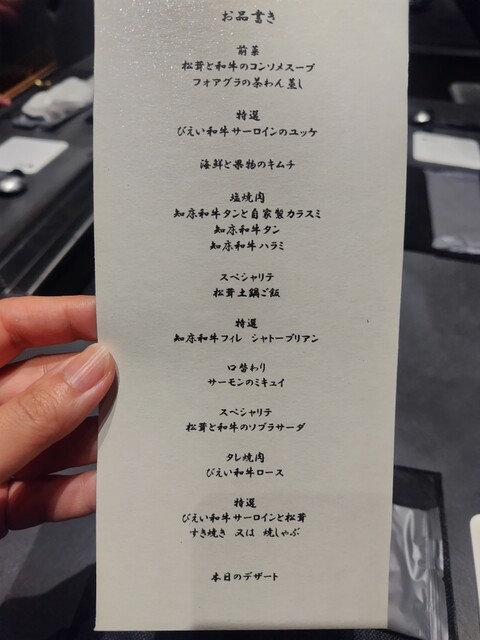 お品書き
前菜
松茸と和牛のコンソメスープ
フォアグラの茶わん蒸し
特選
びえい和牛サーロインのユッケ
海鮮と果物のキムチ
塩焼肉
知床和牛タンと自家製カラスミ
知床和牛タン
知床和牛ハラミ
スペシャリテ
松茸土鍋ご飯
特選
知床和牛フィレ シャトーブリアン
口替わり
サーモンのミキュイ
スペシャリテ
松茸と和牛のソプラサーダ
タレ焼肉
びえい和牛ロース
特選
びえい和牛サーロインと松茸
すき焼き 又は 焼しゃぶ
本日のデザート